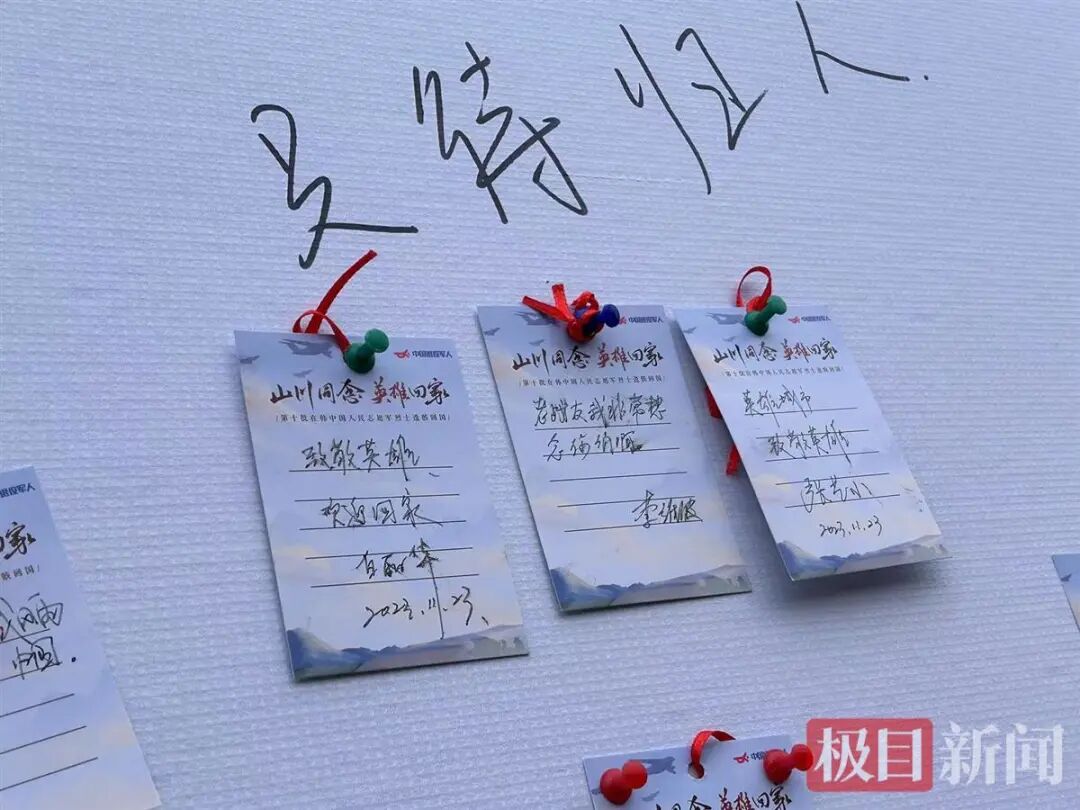 灵待归人.
中国退役军人
山川同念 英雄回家
/第十批在韩中国人民志愿军烈士遗骸回国/
致敬英雄、
欢迎回家
2023.11.23、
中国退役军人
山川同念 英雄回家
/第十批在韩中国人民志愿军烈士遗骸回国/
李
中国退役军人
山川同念 英雄回家
/第十批在韩中国人民志愿军烈士遗骸回国/
英雄城市
致敬英雄
2023.11.23
退役军人
回家
骸回国/
中国.
中国退役
山川同念 英雄回家
极目新闻